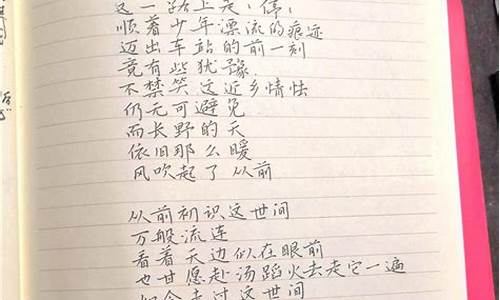 这一路上走走停停
顺着少年漂流的痕迹
迈出车站的前一刻
竟有些犹豫
不禁笑这近乡情怯
仍无可避免
而长野的天
依旧那么暖
风吹起了从前
从前初识这世间
万般流连
看着天边似在眼前
也甘愿赴汤蹈火去走它一遍
如今走过这世间